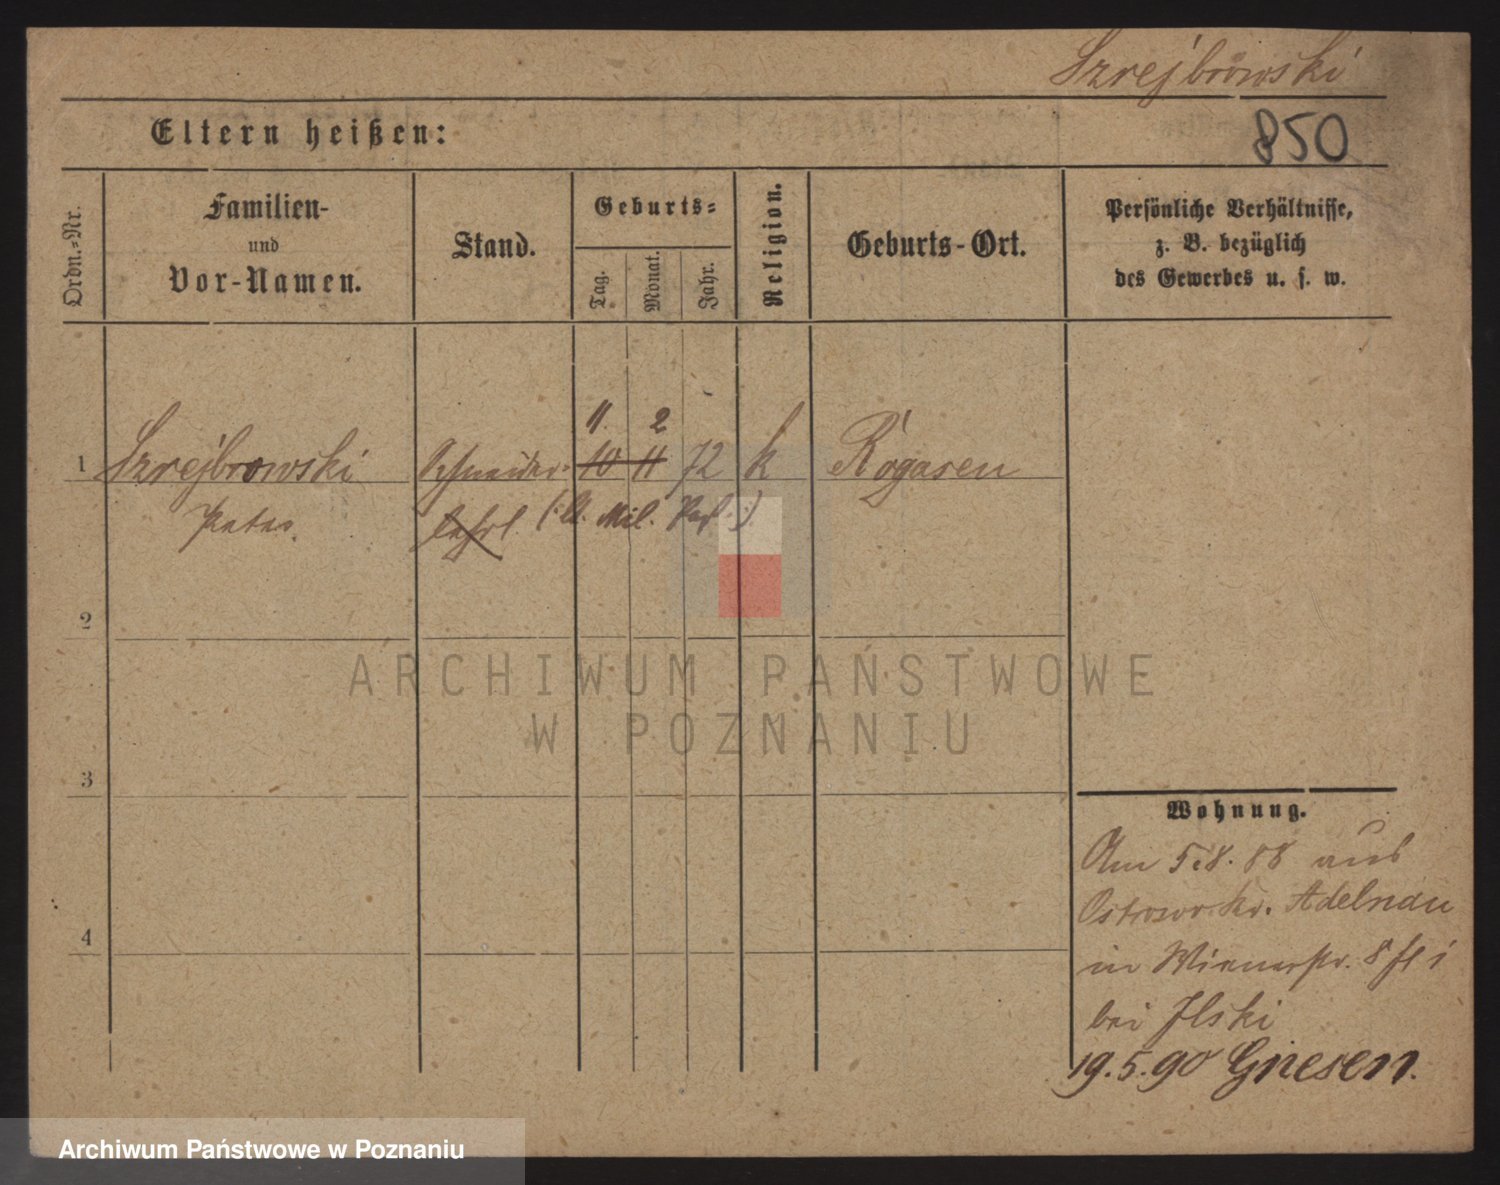 Szrejbrowski
Eltern heißen:
850
Ordn.-Nr.
Familien-
und
Vor-Namen.
Stand.
Geburts-
Tag.
Monat.
Jahr.
Religion.
Geburts-Ort.
Persönliche Verhältnisse,
z. B. bezüglich
des Gewerbes u. s. w.
11. 2
1 Szrejbrowski Schneider- 10 11 72 k Rogasen
Peter lehrl (:l. Mil. Pass:)
2
3
4
Wohnung.
Am 5.8.88 aus
Ostrowo Kr. Adelnau
in Wienerstr. 8
bei Ilski
19.5.90 Gnesen.
ARCHIWUM PAŃSTWOWE
W POZNANIU
Archiwum Państwowe w Poznaniu